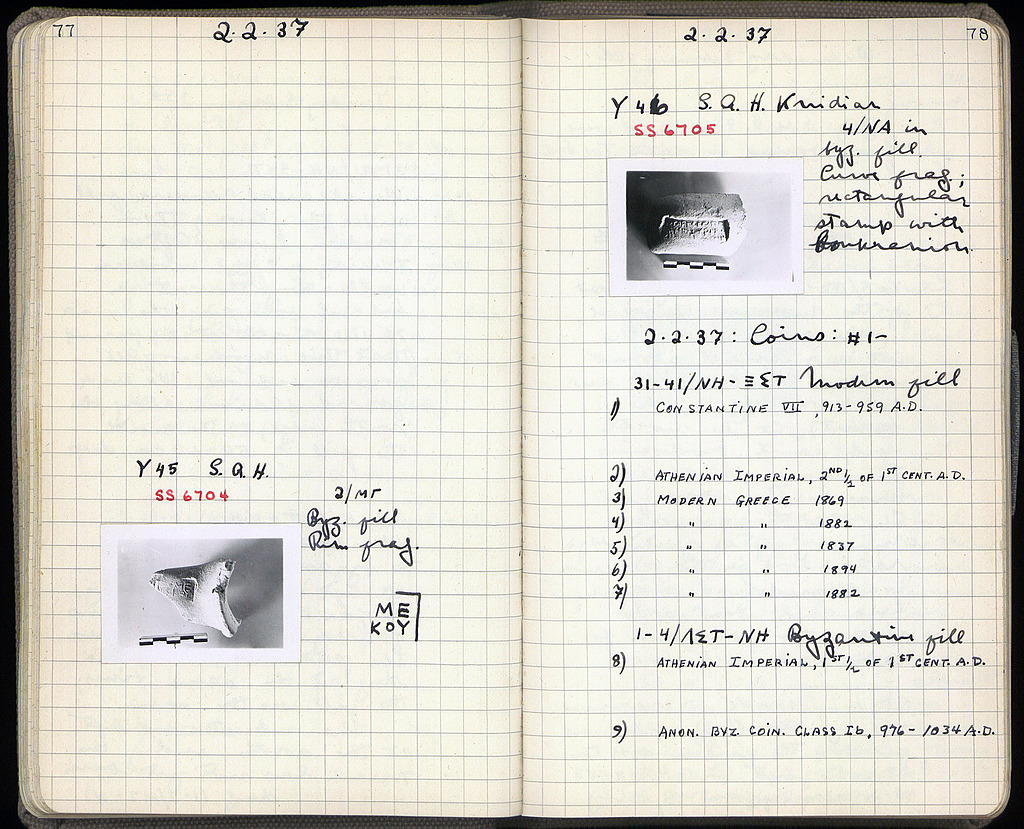 77
2.2.37
Y 45 S.A.H.
SS 6704
2/ΜΓ
Byz. fill
Rim frag.
ΜΕ
ΚΟΥ
2.2.37
78
Y 46 S.A.H. Knidian
SS 6705
4/ΝΑ in
byz. fill.
Curve frag.;
rectangular
stamp with
boukranion.
2.2.37: Coins: #1-
31-41/ΝΗ-ΞΣΤ Modern fill
1) CONSTANTINE VII, 913-959 A.D.
2) ATHENIAN IMPERIAL, 2ND 1/2 OF 1ST CENT. A.D.
3) MODERN GREECE 1869
4) " " 1882
5) " " 1837
6) " " 1894
7) " " 1882
1-4/ΛΣΤ-ΝΗ Byzantine fill
8) ATHENIAN IMPERIAL, 1ST 1/2 OF 1ST CENT. A.D.
9) ANON. BYZ. COIN. CLASS Ib, 976-1034 A.D.